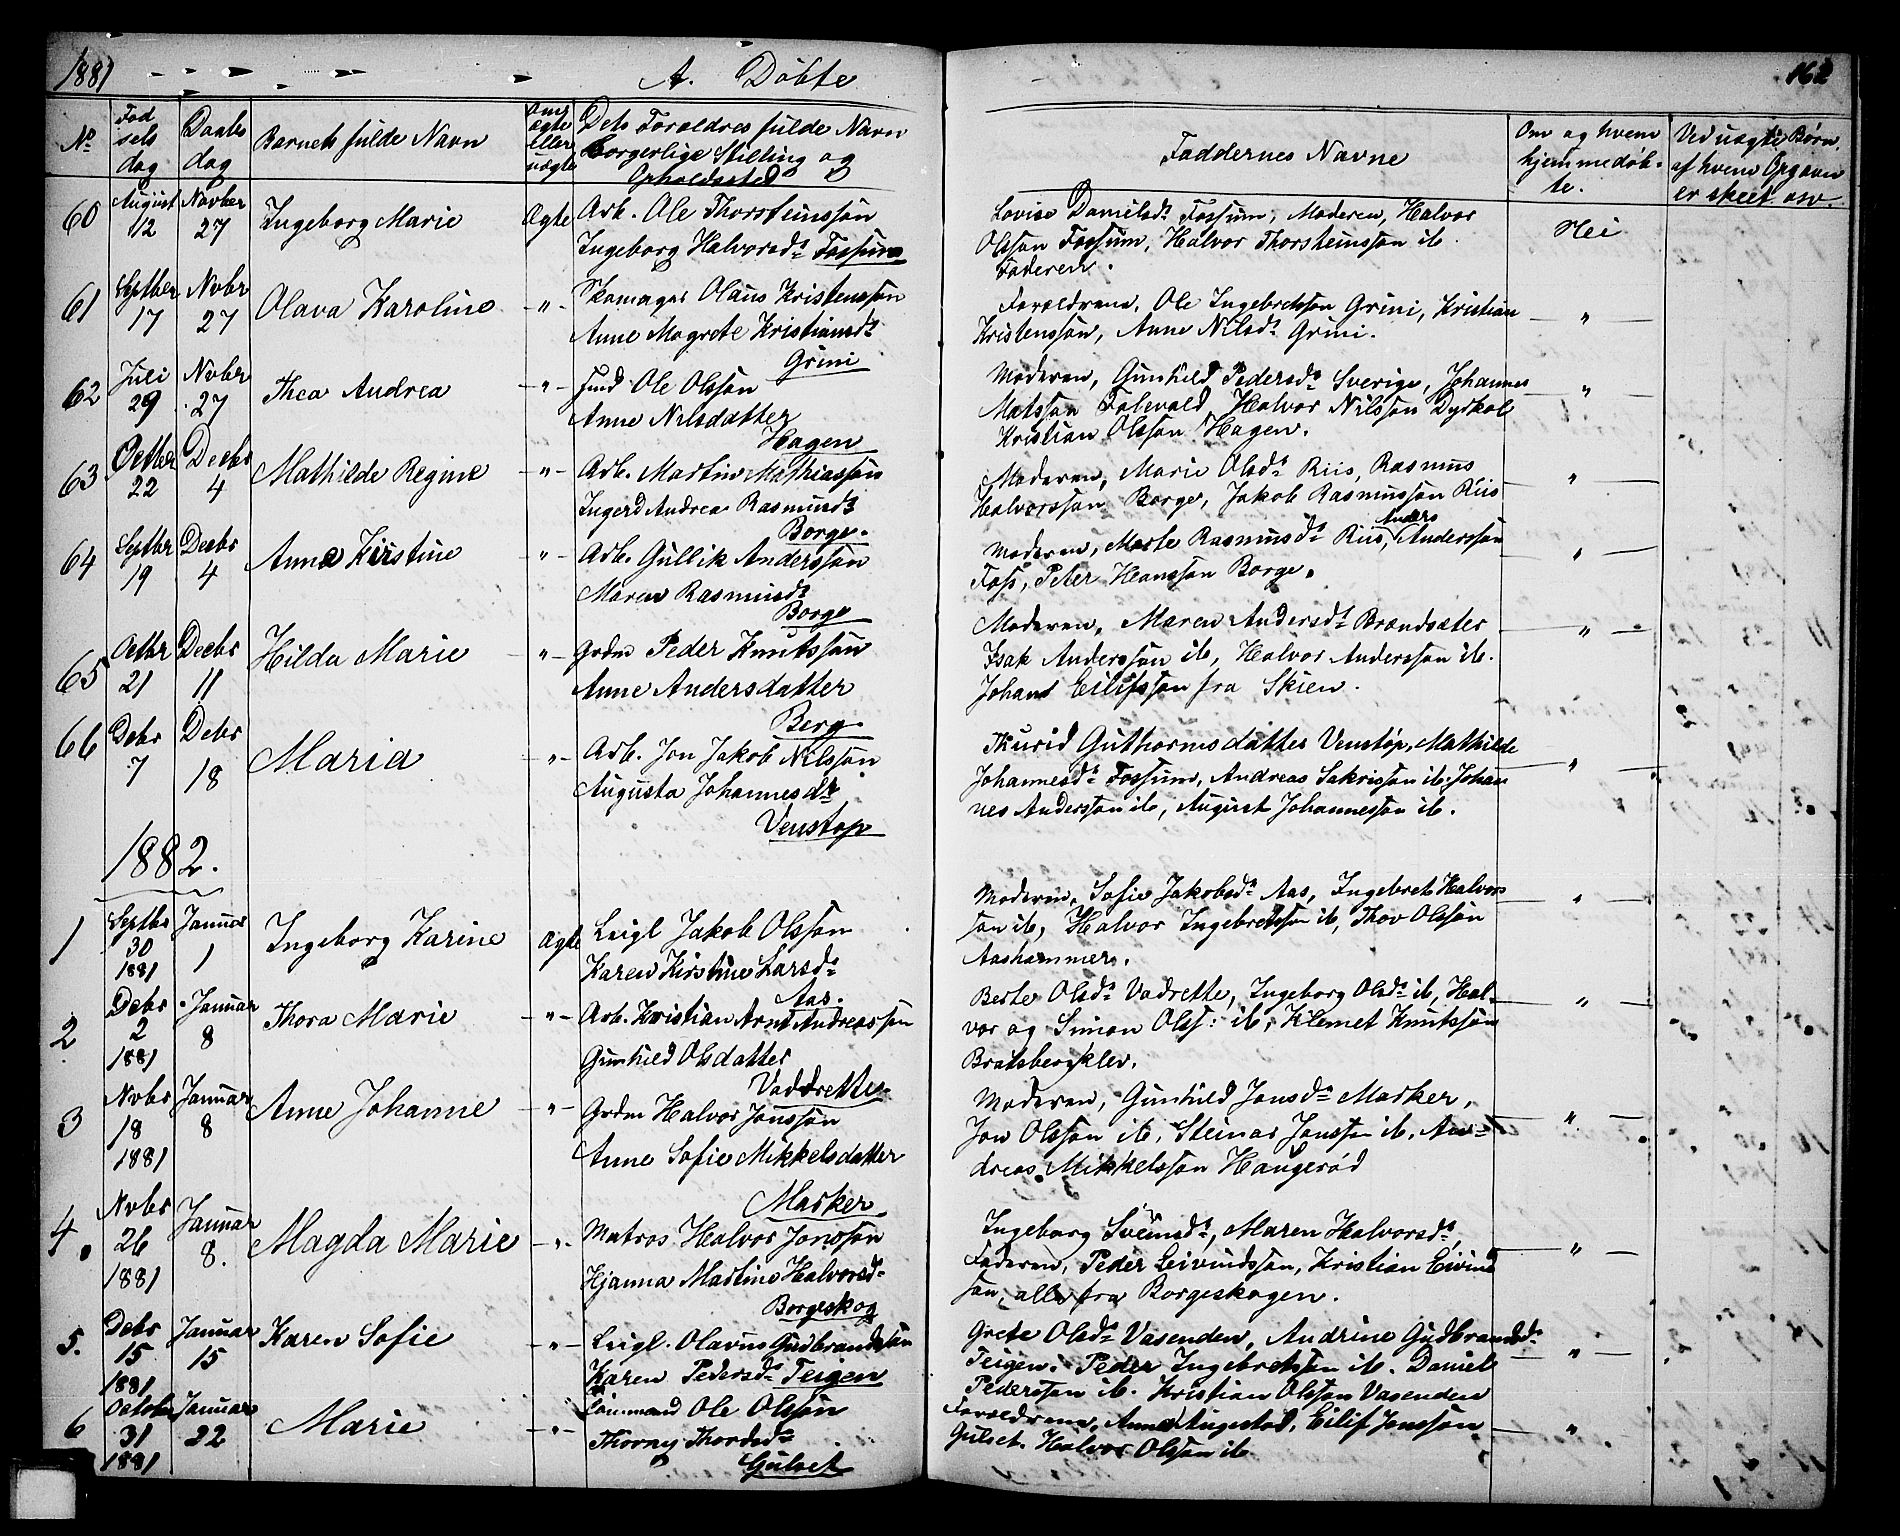 1881 A. Döbte 162
No Fødselsdag Daabsdag Barnets fulde Navn Om ægte eller uægte Dets Forældres fulde Navn Borgerlige Stilling og Opholdssted Faddernes Navne Om og hvem hjemmedöbte. Ved uægte Børn, af hvem Opgaven er skeet osv.
60 August 12 Novber 27 Ingeborg Marie Ægte Arb. Ole Thorsteinssön
Ingeborg Halvorsdr Fossum
Lovise Danielsdr Fossum, Moderen, Halvor
Olssön Fossum, Halvor Thorsteinssön ib.
Faderen.
Nei
61 Septber 17 Novbr 27 Olava Karoline -"- Skomager Olaus Kristenssön
Anne Margrete Kristiansdr
Grini
Forældrene, Ole Ingebretssön Grini, Kristian
Kristenssön, Anne Nilsdr Grini.
"
62 Juli 29 Novbr 27 Thea Andrea -"- Ole Olssön
Anne Nilsdatter
Hagen
Moderen, Gunhild Pedersdr Sverige, Johannes
Matssön Halvor Nilssön
Kristian Olssön Hagen.
"
63 Octber 22 Decbr 4 Mathilde Regine -"- Arb. Martin Mathiassön
Ingerd Andrea Rasmusdr
Borge.
Moderen, Marie Olsdr Riis, Rasmus
Halvorssön Borge, Jakob Rasmussön Riis
"
64 Septbr 19 Decbr 4 Anne Kirstine -"- Arb. Gullik Anderssön
Maren Rasmusdr
Borge
Moderen, Marte Rasmusdr Riis, Anders Anderssön
Foss, Peter Hanssön Borge.
"
65 Octbr 21 Decbr 11 Hilda Marie -"- Grdm Peder Knutssön
Anne Andersdatter
Berg
Moderen, Maren Andersdr Brændsæter
Isak Anderssön ib, Halvor Anderssön ib.
Johans Eilifssön fra Skien.
"
66 Debr 7 Debr 18 Maria -"- Arb. Jon Jakob Nilssön
Augusta Johannesdr
Venstöp
Thurid Guthormsdatter Venstöp, Mathilde
Johannesdr Fossum, Andreas Sakrissön ib. Johan
nes Anderssön ib, August Johannessön ib.
"
1882.
1 Septbr 30 1881 Januar 1 Ingeborg Karine Ægte Leigl Jakob Olssön
Karen Kirstine Larsdr
Aas.
Moderen, Sofie Jakobsdr Aas, Ingebret Halvors
sön ib, Halvor Ingebretssön ib, Thov Olssön
Aashammer.
"
2 Debr 2 1881 Januar 8 Thora Marie -"- Arb. Kristian Arnt Andreassön
Gunhild Olsdatter
Vadrette
Berte Olsdr Vadrette, Ingeborg Olsdr ib, Hal-
vor og Simon Olss: ib, Klemet Knutssön
Bratsbergklev.
"
3 Novbr 18 1881 Januar 8 Anne Johanne -"- Grdm Halvor Jonssön
Anne Sofie Mikkelsdatter
Marker
Moderen, Gunhild Jonsdr Marker,
Jon Olssön ib, Steinar Jonssön ib, An-
dreas Mikkelssön Haugerød
"
4. Novbr 26 1881 Januar 8. Magda Marie -"- Matros Halvor Jonssön
Hjanna Martine Halvorsd-
Borgeskog
Ingeborg Sveinsdr, Maren Halvorsdr,
Faderen, Peder Eivindssön, Kristian Eivind
sön, alle fra Borgeskogen.
"
5. Debr 15 1881 Januar 15 Karen Sofie -"- Leigl. Olavus Gudbrandssön
Karen Pedersdr Teigen
Grete Olsdr Vasenden, Andrine Gudbrandsdr
Teigen. Peder Ingebretssön ib. Daniel
Pederssön ib. Kristian Olssön Vasenden
"
6 October 31 1881 Januar 22 Marie -"- Ole Olssön
Thorny Thordsdr
Gulset
Forældrene, Anne Augestad, Eilif Jonssön
Gulset. Halvor Olssön ib
"